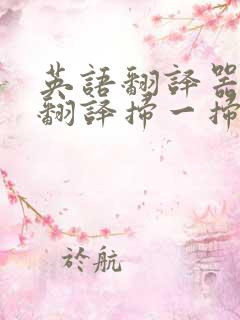 英語翻譯器
翻譯掃一掃
於航